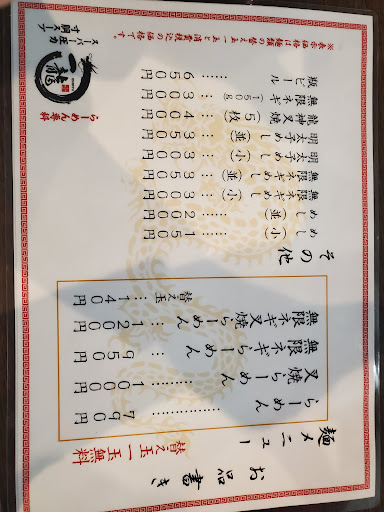 お品書き
替え玉一玉無料
麺メニュー
らーめん……………790円
叉焼らーめん………1000円
無限ネギらーめん…950円
無限ネギ叉焼らーめん…1200円
替え玉…140円
その他
めし(小)……150円
めし(並)……200円
無限ネギめし(小)…300円
無限ネギめし(並)…350円
明太子めし(小)…300円
明太子めし(並)…350円
龍神叉焼(5枚)…400円
無限ネギ(150g)…300円
瓶ビール……650円
※表示価格は麺類の替え玉一玉と消費税込の価格です。
スーパー圧力
寸胴スープ
一龍
らーめん専科